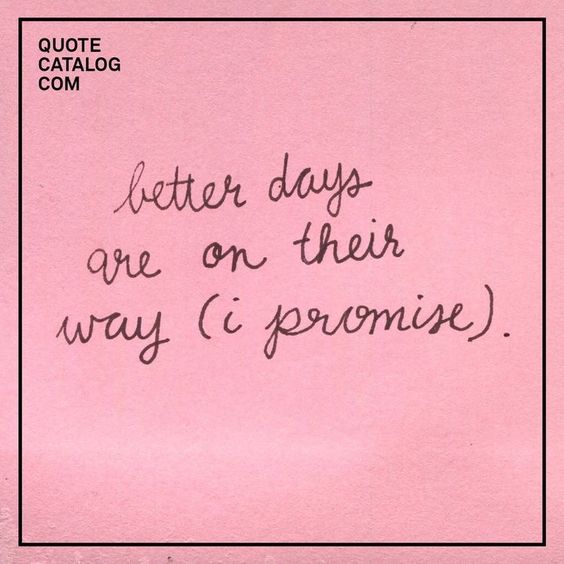 QUOTE
CATALOG
COM
better days
are on their
way (i promise).